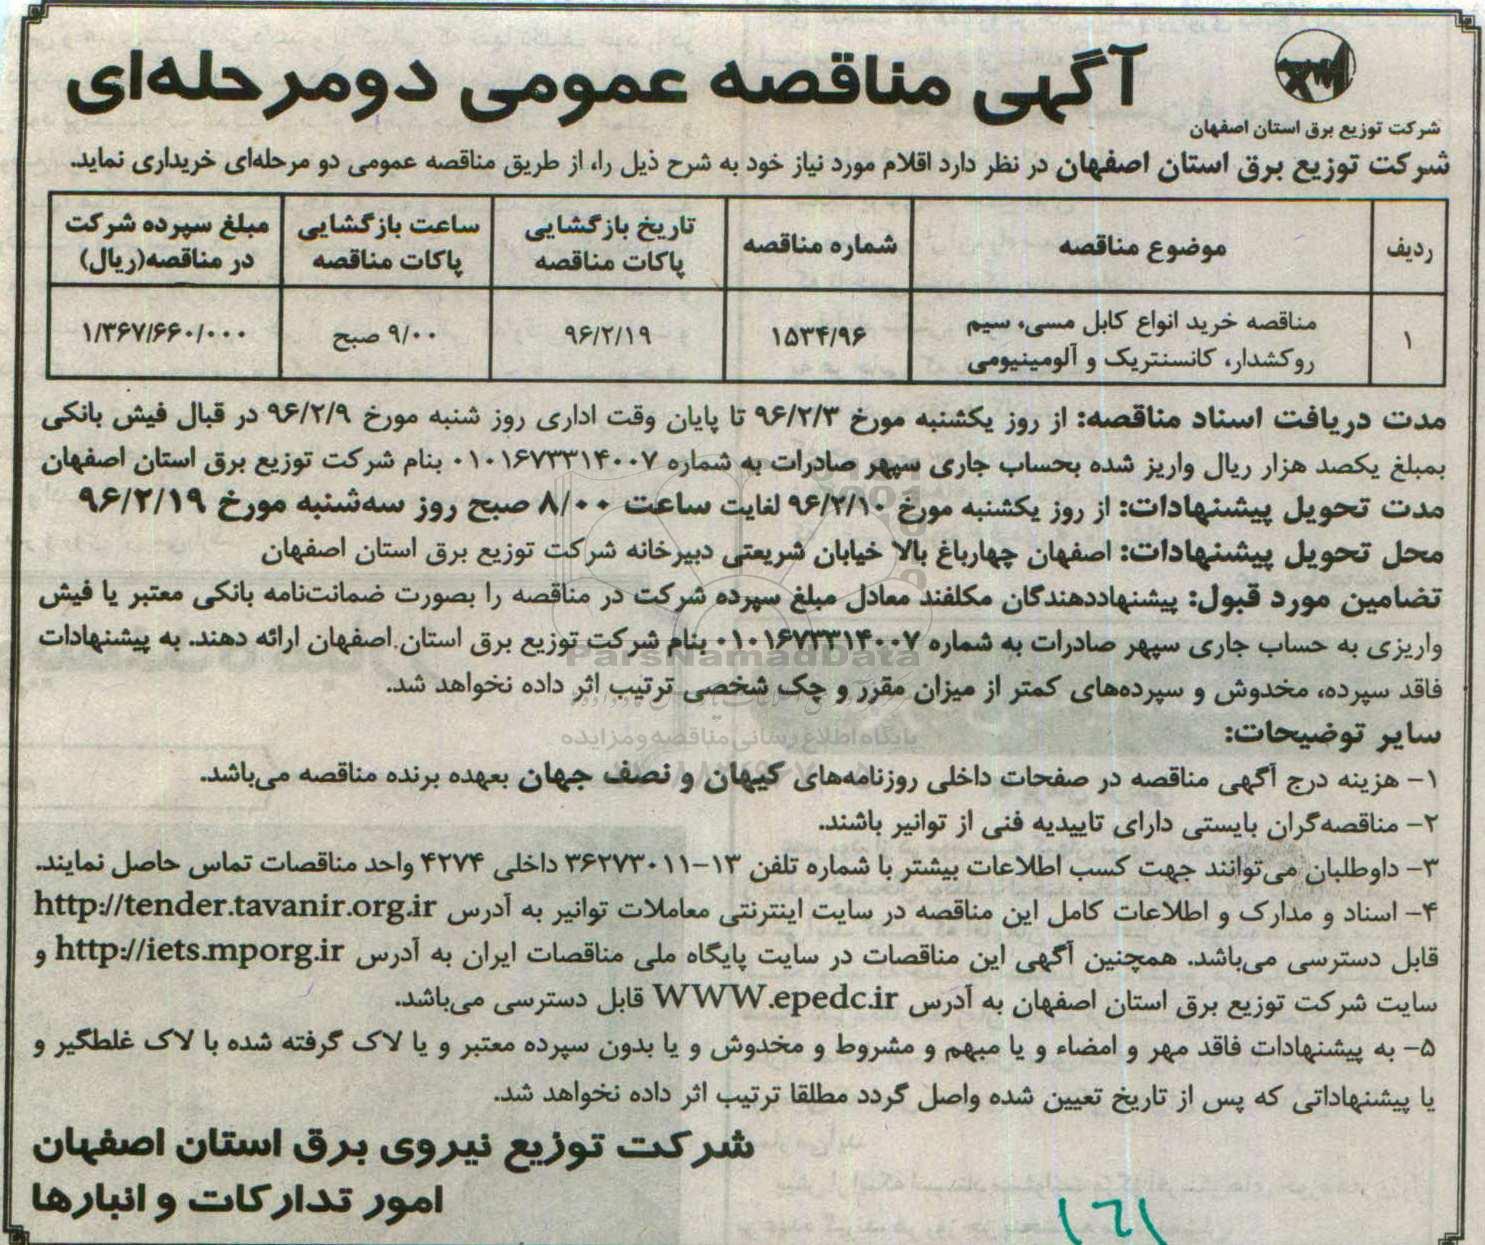 آگهی مناقصه عمومی دومرحله‌ای
شرکت توزیع برق استان اصفهان
شرکت توزیع برق استان اصفهان در نظر دارد اقلام مورد نیاز خود به شرح ذیل را، از طریق مناقصه عمومی دو مرحله‌ای خریداری نماید.
ردیف | موضوع مناقصه | شماره مناقصه | تاریخ بازگشایی پاکات مناقصه | ساعت بازگشایی پاکات مناقصه | مبلغ سپرده شرکت در مناقصه(ریال)
۱ | مناقصه خرید انواع کابل مسی، سیم روکشدار، کانسنتریک و آلومینیومی | ۱۵۳۴/۹۶ | ۹۶/۲/۱۹ | ۹/۰۰ صبح | ۱/۳۶۷/۶۶۰/۰۰۰
مدت دریافت اسناد مناقصه: از روز یکشنبه مورخ ۹۶/۲/۳ تا پایان وقت اداری روز شنبه مورخ ۹۶/۲/۹ در قبال فیش بانکی
بمبلغ یکصد هزار ریال واریز شده بحساب جاری سپهر صادرات به شماره ۰۱۰۱۶۷۳۳۱۴۰۰۷ بنام شرکت توزیع برق استان اصفهان
مدت تحویل پیشنهادات: از روز یکشنبه مورخ ۹۶/۲/۱۰ لغایت ساعت ۸/۰۰ صبح روز سه‌شنبه مورخ ۹۶/۲/۱۹
محل تحویل پیشنهادات: اصفهان چهارباغ بالا خیابان شریعتی دبیرخانه شرکت توزیع برق استان اصفهان
تضامین مورد قبول: پیشنهاددهندگان مکلفند معادل مبلغ سپرده شرکت در مناقصه را بصورت ضمانت‌نامه بانکی معتبر یا فیش
واریزی به حساب جاری سپهر صادرات به شماره ۰۱۰۱۶۷۳۳۱۴۰۰۷ بنام شرکت توزیع برق استان اصفهان ارائه دهند. به پیشنهادات
فاقد سپرده، مخدوش و سپرده‌های کمتر از میزان مقرر و چک شخصی ترتیب اثر داده نخواهد شد.
سایر توضیحات:
۱- هزینه درج آگهی مناقصه در صفحات داخلی روزنامه‌های کیهان و نصف جهان بعهده برنده مناقصه می‌باشد.
۲- مناقصه‌گران بایستی دارای تاییدیه فنی از توانیر باشند.
۳- داوطلبان می‌توانند جهت کسب اطلاعات بیشتر با شماره تلفن ۱۳-۳۶۲۷۳۰۱۱ داخلی ۴۲۷۴ واحد مناقصات تماس حاصل نمایند.
۴- اسناد و مدارک و اطلاعات کامل این مناقصه در سایت اینترنتی معاملات توانیر به آدرس http://tender.tavanir.org.ir
قابل دسترسی می‌باشد. همچنین آگهی این مناقصات در سایت پایگاه ملی مناقصات ایران به آدرس http://iets.mporg.ir و
سایت شرکت توزیع برق استان اصفهان به آدرس WWW.epedc.ir قابل دسترسی می‌باشد.
۵- به پیشنهادات فاقد مهر و امضاء و یا مبهم و مشروط و مخدوش و یا بدون سپرده معتبر و یا لاک گرفته شده با لاک غلطگیر و
یا پیشنهاداتی که پس از تاریخ تعیین شده واصل گردد مطلقا ترتیب اثر داده نخواهد شد.
شرکت توزیع نیروی برق استان اصفهان
امور تدارکات و انبارها
ParsNamadData
پایگاه اطلاع رسانی مناقصه و مزایده